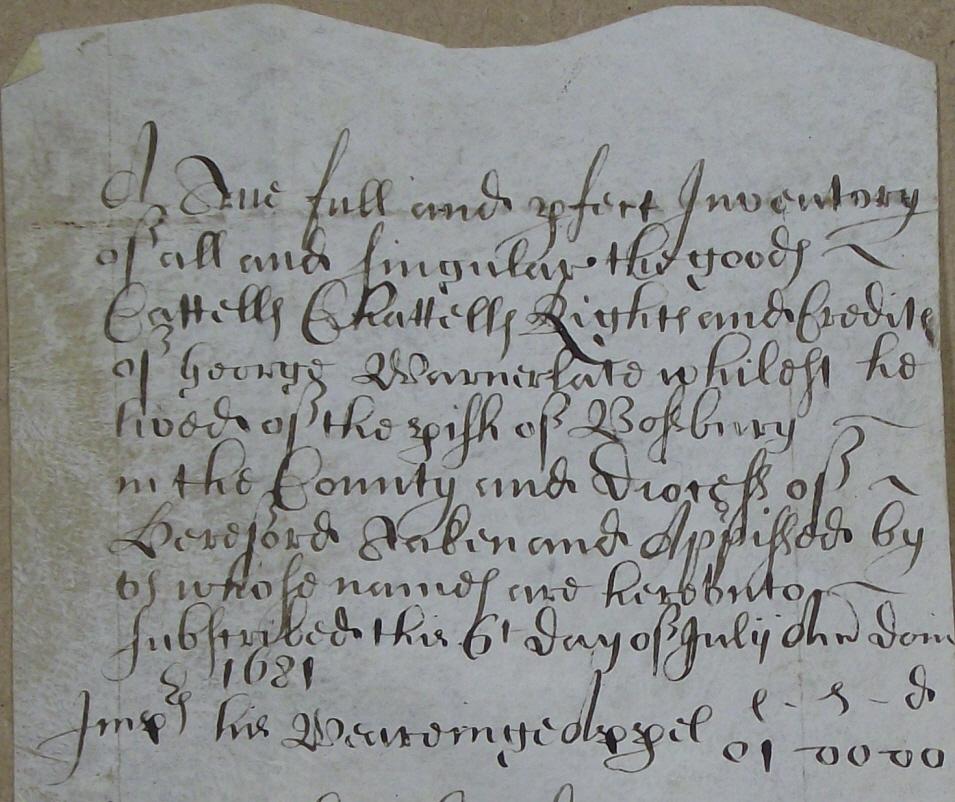 A True full and pfect Inventory
of all and singular the goods
Cattells Chattells Rights and Credits
of George Warner late whilest he
lived of the pish of Bosbury
in the County and Diocess of
Hereford Taken and Appissed by
us whose names are hereunto
subscribed this 6t day of Julij Ann Dom
1681
l - s - d
Imps his Weareinge Appel 01 00 00